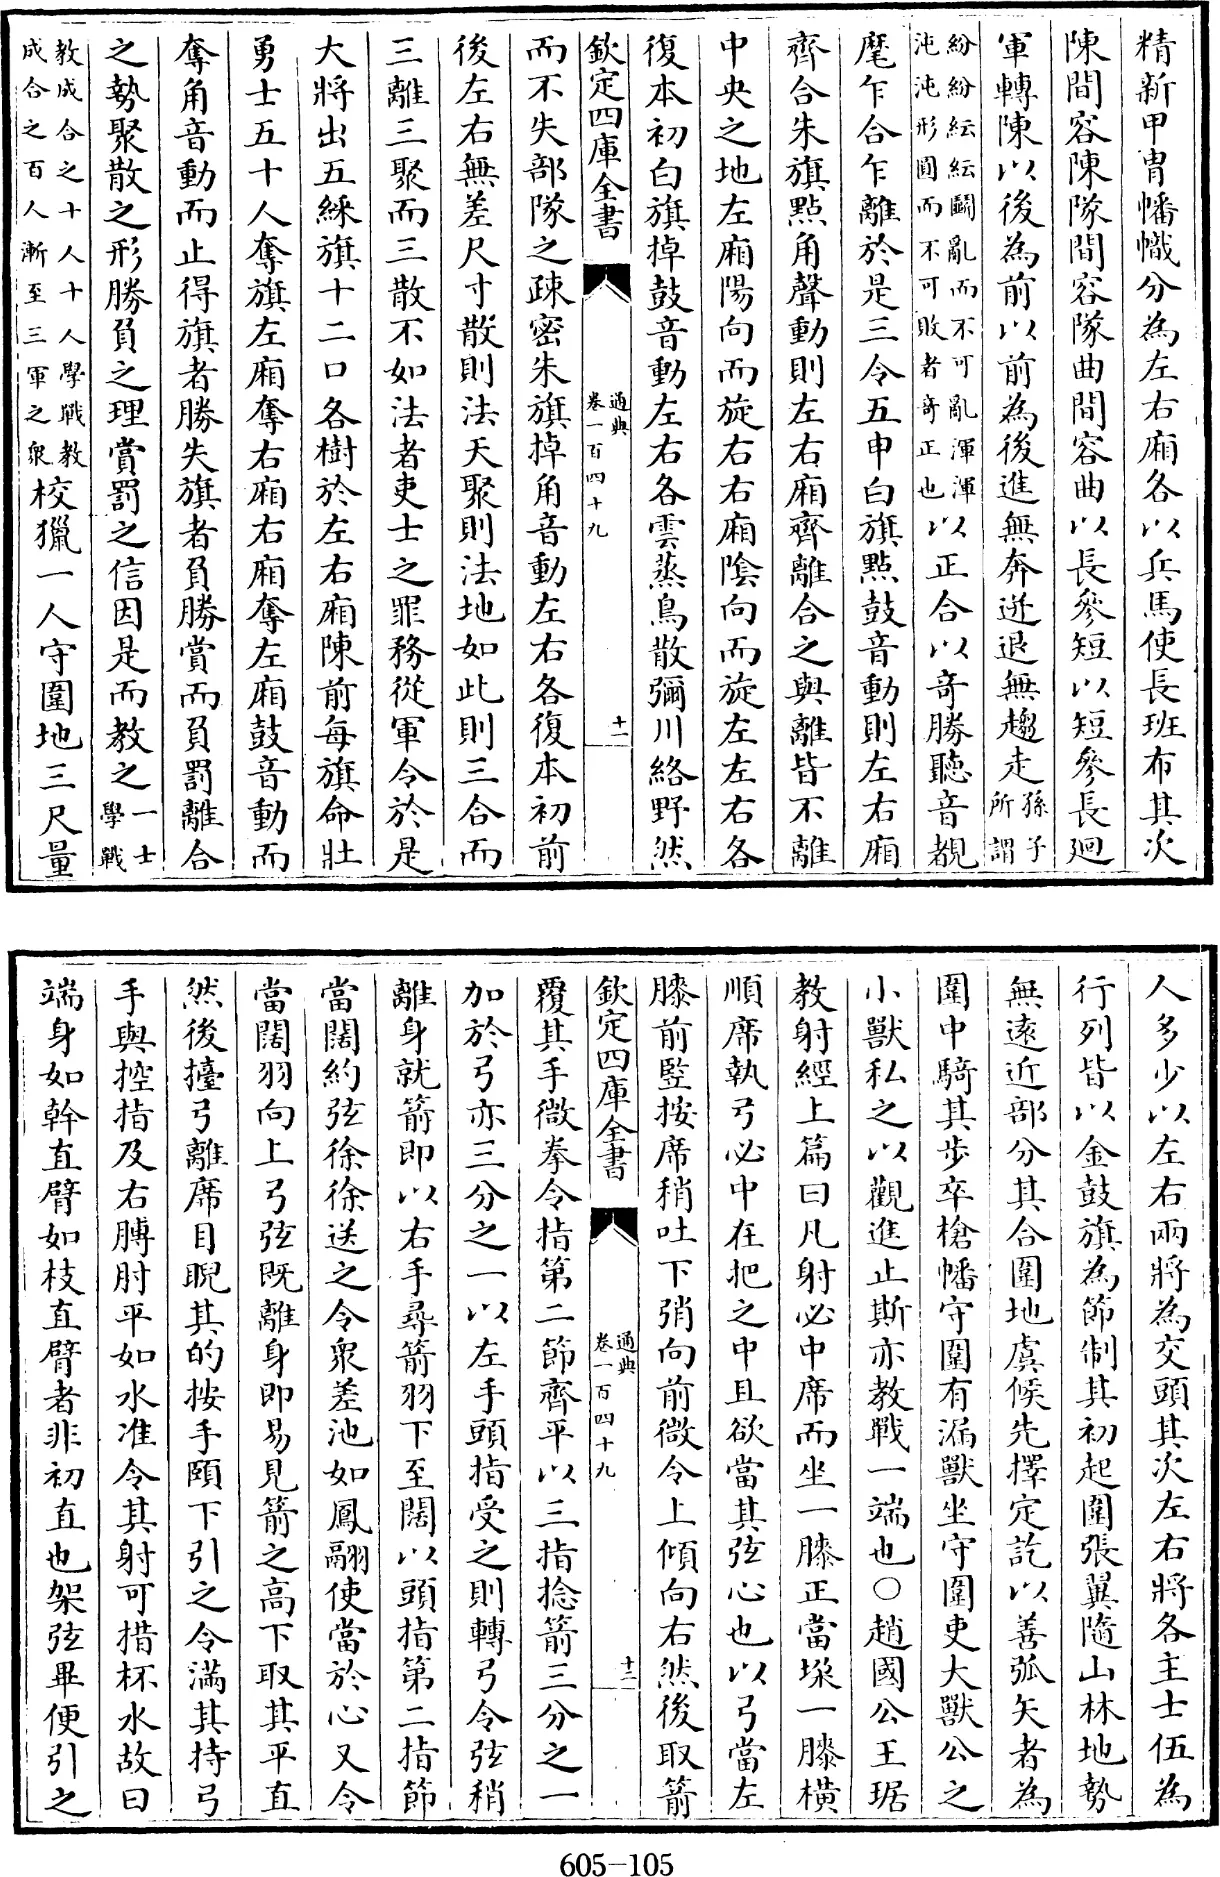 精新甲胄幡幟分為左右廂各以兵馬使長班布其次
陳間容陳隊間容隊曲間容曲以長參短以短參長廻
軍轉陳以後為前以前為後進無奔迸退無趨走孫子所謂
紛紛紜紜鬬亂而不可亂渾渾沌沌形圓而不可敗者奇正也以正合以奇勝聽音覩
麾乍合乍離於是三令五申白旗點鼓音動則左右廂
齊合朱旗點角聲動則左右廂齊離合之與離皆不離
中央之地左廂陽向而旋右右廂隂向而旋左左右各
復本初白旗掉鼓音動左右各雲蒸鳥散彌川絡野然
欽定四庫全書
通典
卷一百四十九
十一
而不失部隊之疎密朱旗掉角音動左右各復本初前
後左右無差尺寸散則法天聚則法地如此則三合而
三離三聚而三散不如法者吏士之罪務從軍令於是
大將出五綵旗十二口各樹於左右廂陳前每旗命壯
勇士五十人奪旗左廂奪右廂右廂奪左廂鼓音動而
奪角音動而止得旗者勝失旗者負勝賞而負罰離合
之勢聚散之形勝負之理賞罰之信因是而教之一士學戰
教成合之十人十人學戰教成合之百人漸至三軍之衆校獵一人守圍地三尺量
人多少以左右兩將為交頭其次左右將各主士伍為
行列皆以金鼓旗為節制其初起圍張翼隨山林地勢
無遠近部分其合圍地虞候先擇定訖以善弧矢者為
圍中騎其步卒槍幡守圍有漏獸坐守圍吏大獸公之
小獸私之以觀進止斯亦教戰一端也○趙國公王琚
教射經上篇曰凡射必中席而坐一膝正當垛一膝橫
順席執弓必中在把之中且欲當其弦心也以弓當左
膝前豎按席稍吐下弰向前微令上傾向右然後取箭
欽定四庫全書
通典
卷一百四十九
十二
覆其手微拳令指第二節齊平以三指捻箭三分之一
加於弓亦三分之一以左手頭指受之則轉弓令弦稍
離身就箭即以右手尋箭羽下至闊以頭指第二指節
當闊約弦徐徐送之令衆差池如鳳翮使當於心又令
當闊羽向上弓弦既離身即易見箭之高下取其平直
然後擡弓離席目睨其的按手頤下引之令滿其持弓
手與控指及右膊肘平如水准令其射可措杯水故曰
端身如幹直臂如枝直臂者非初直也架弦畢便引之
605-105